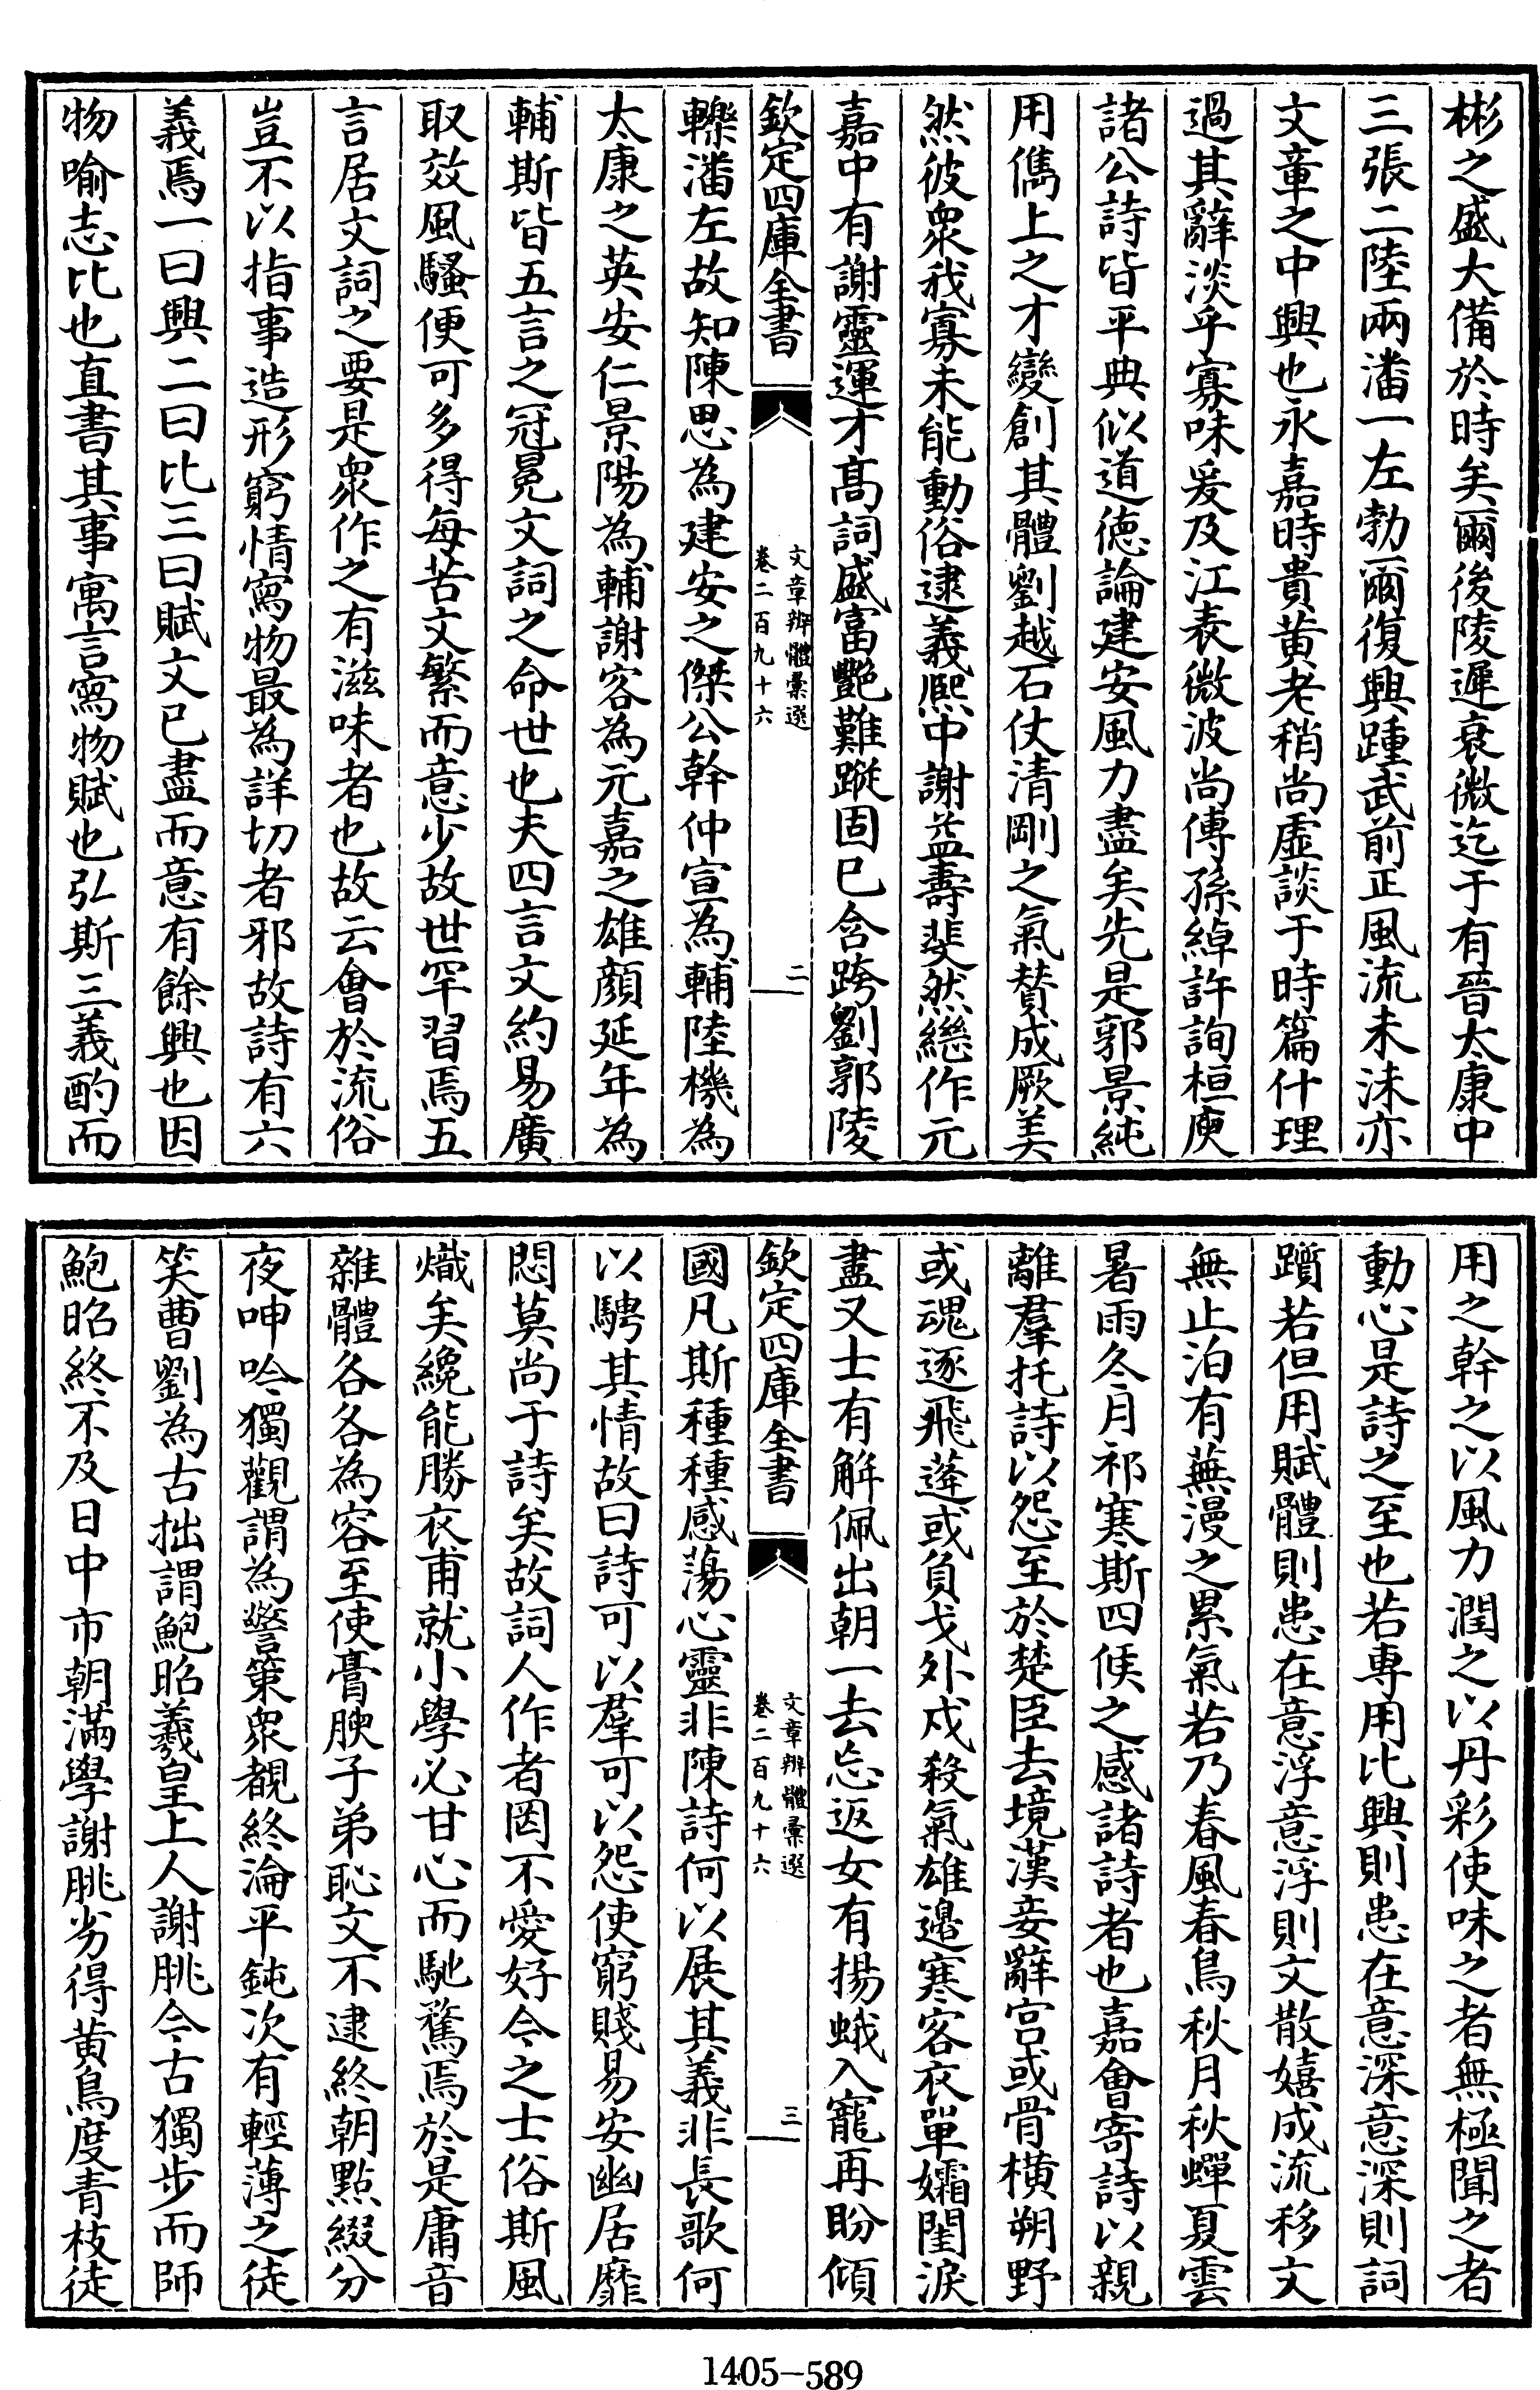 彬之盛大備於時矣爾後陵遲衰微迄于有晉太康中
三張二陸兩潘一左勃爾復興踵武前正風流未沬亦
文章之中興也永嘉時貴黄老稍尚虛談于時篇什理
過其辭淡乎寡味爰及江表微波尚傳孫綽許詢桓庾
諸公詩皆平典似道德論建安風力盡矣先是郭景純
用儁上之才變創其體劉越石仗清剛之氣賛成厥美
然彼衆我寡未能動俗逮義熙中謝益壽斐然繼作元
嘉中有謝靈運才髙詞盛富艷難蹤固已含跨劉郭陵
欽定四庫全書
文章辨體彙選
卷二百九十六
二
轢潘左故知陳思為建安之傑公幹仲宣為輔陸機為
太康之英安仁景陽為輔謝客為元嘉之雄顔延年為
輔斯皆五言之冠冕文詞之命世也夫四言文約易廣
取效風騷便可多得每苦文繁而意少故世罕習焉五
言居文詞之要是衆作之有滋味者也故云會於流俗
豈不以指事造形窮情寫物最為詳切者邪故詩有六
義焉一曰興二曰比三曰賦文已盡而意有餘興也因
物喻志比也直書其事寓言寫物賦也弘斯三義酌而
用之幹之以風力潤之以丹彩使味之者無極聞之者
動心是詩之至也若専用比興則患在意深意深則詞
躓若但用賦體則患在意浮意浮則文散嬉成流移文
無止泊有蕪漫之累氣若乃春風春鳥秋月秋蟬夏雲
暑雨冬月祁寒斯四候之感諸詩者也嘉會寄詩以親
離羣托詩以怨至於楚臣去境漢妾辭宫或骨横朔野
或魂逐飛蓬或負戈外戍殺氣雄邉寒客衣單孀閨淚
盡又士有解佩出朝一去忘返女有揚蛾入寵再盼傾
欽定四庫全書
文章辨體彙選
卷二百九十六
三
國凡斯種種感蕩心靈非陳詩何以展其義非長歌何
以騁其情故曰詩可以羣可以怨使窮賤易安幽居靡
悶莫尚于詩矣故詞人作者罔不愛好今之士俗斯風
熾矣纔能勝衣甫就小學必甘心而馳騖焉於是庸音
雜體各各為容至使膏腴子弟恥文不逮終朝點綴分
夜呻吟獨觀謂為警策衆覩終淪平鈍次有輕薄之徒
笑曹劉為古拙謂鮑昭羲皇上人謝朓今古獨步而師
鮑昭終不及日中市朝滿學謝朓劣得黄鳥度青枝徒
1405-589